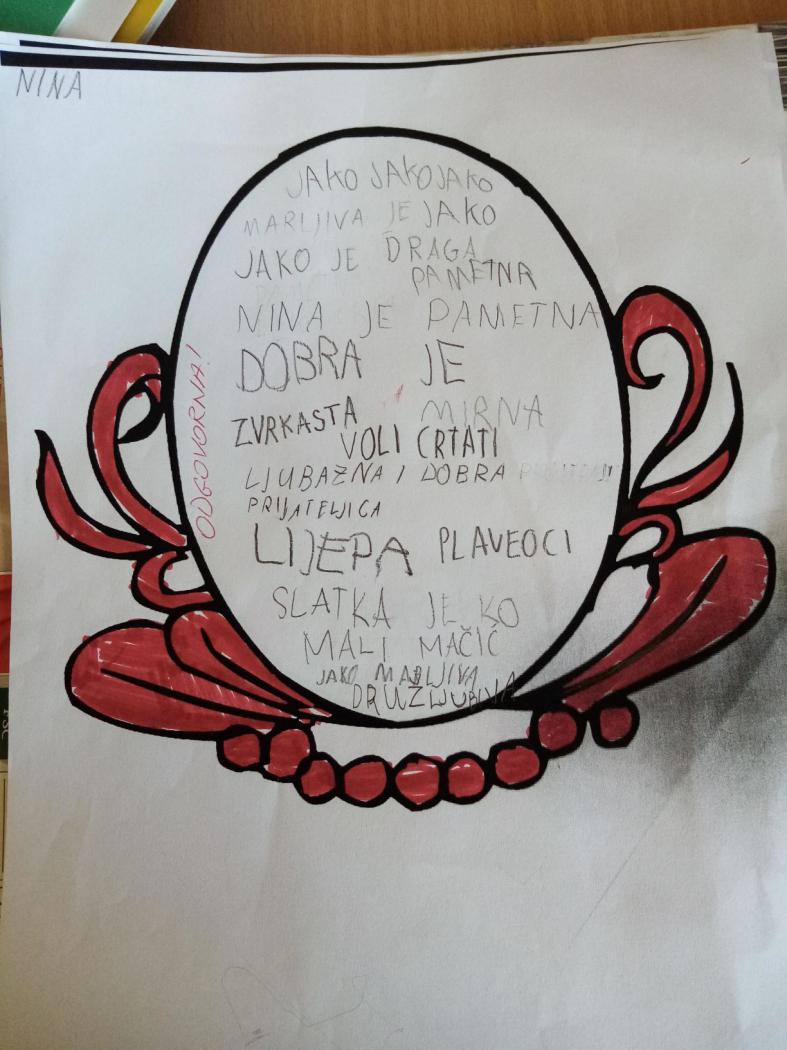 NINA
JAKO JAKO JAKO
MARLJIVA JE JAKO
JAKO JE DRAGA
PAMETNA
NINA JE PAMETNA
DOBRA JE
ODGOVORNA!
ZVRKASTA MIRNA
VOLI CRTATI
LJUBAZNA I DOBRA
PRIJATELJICA
LIJEPA PLAVEOCI
SLATKA JE KO
MALI MAČIĆ
JAKO MARLJIVA
DRUŽELJUBIVA